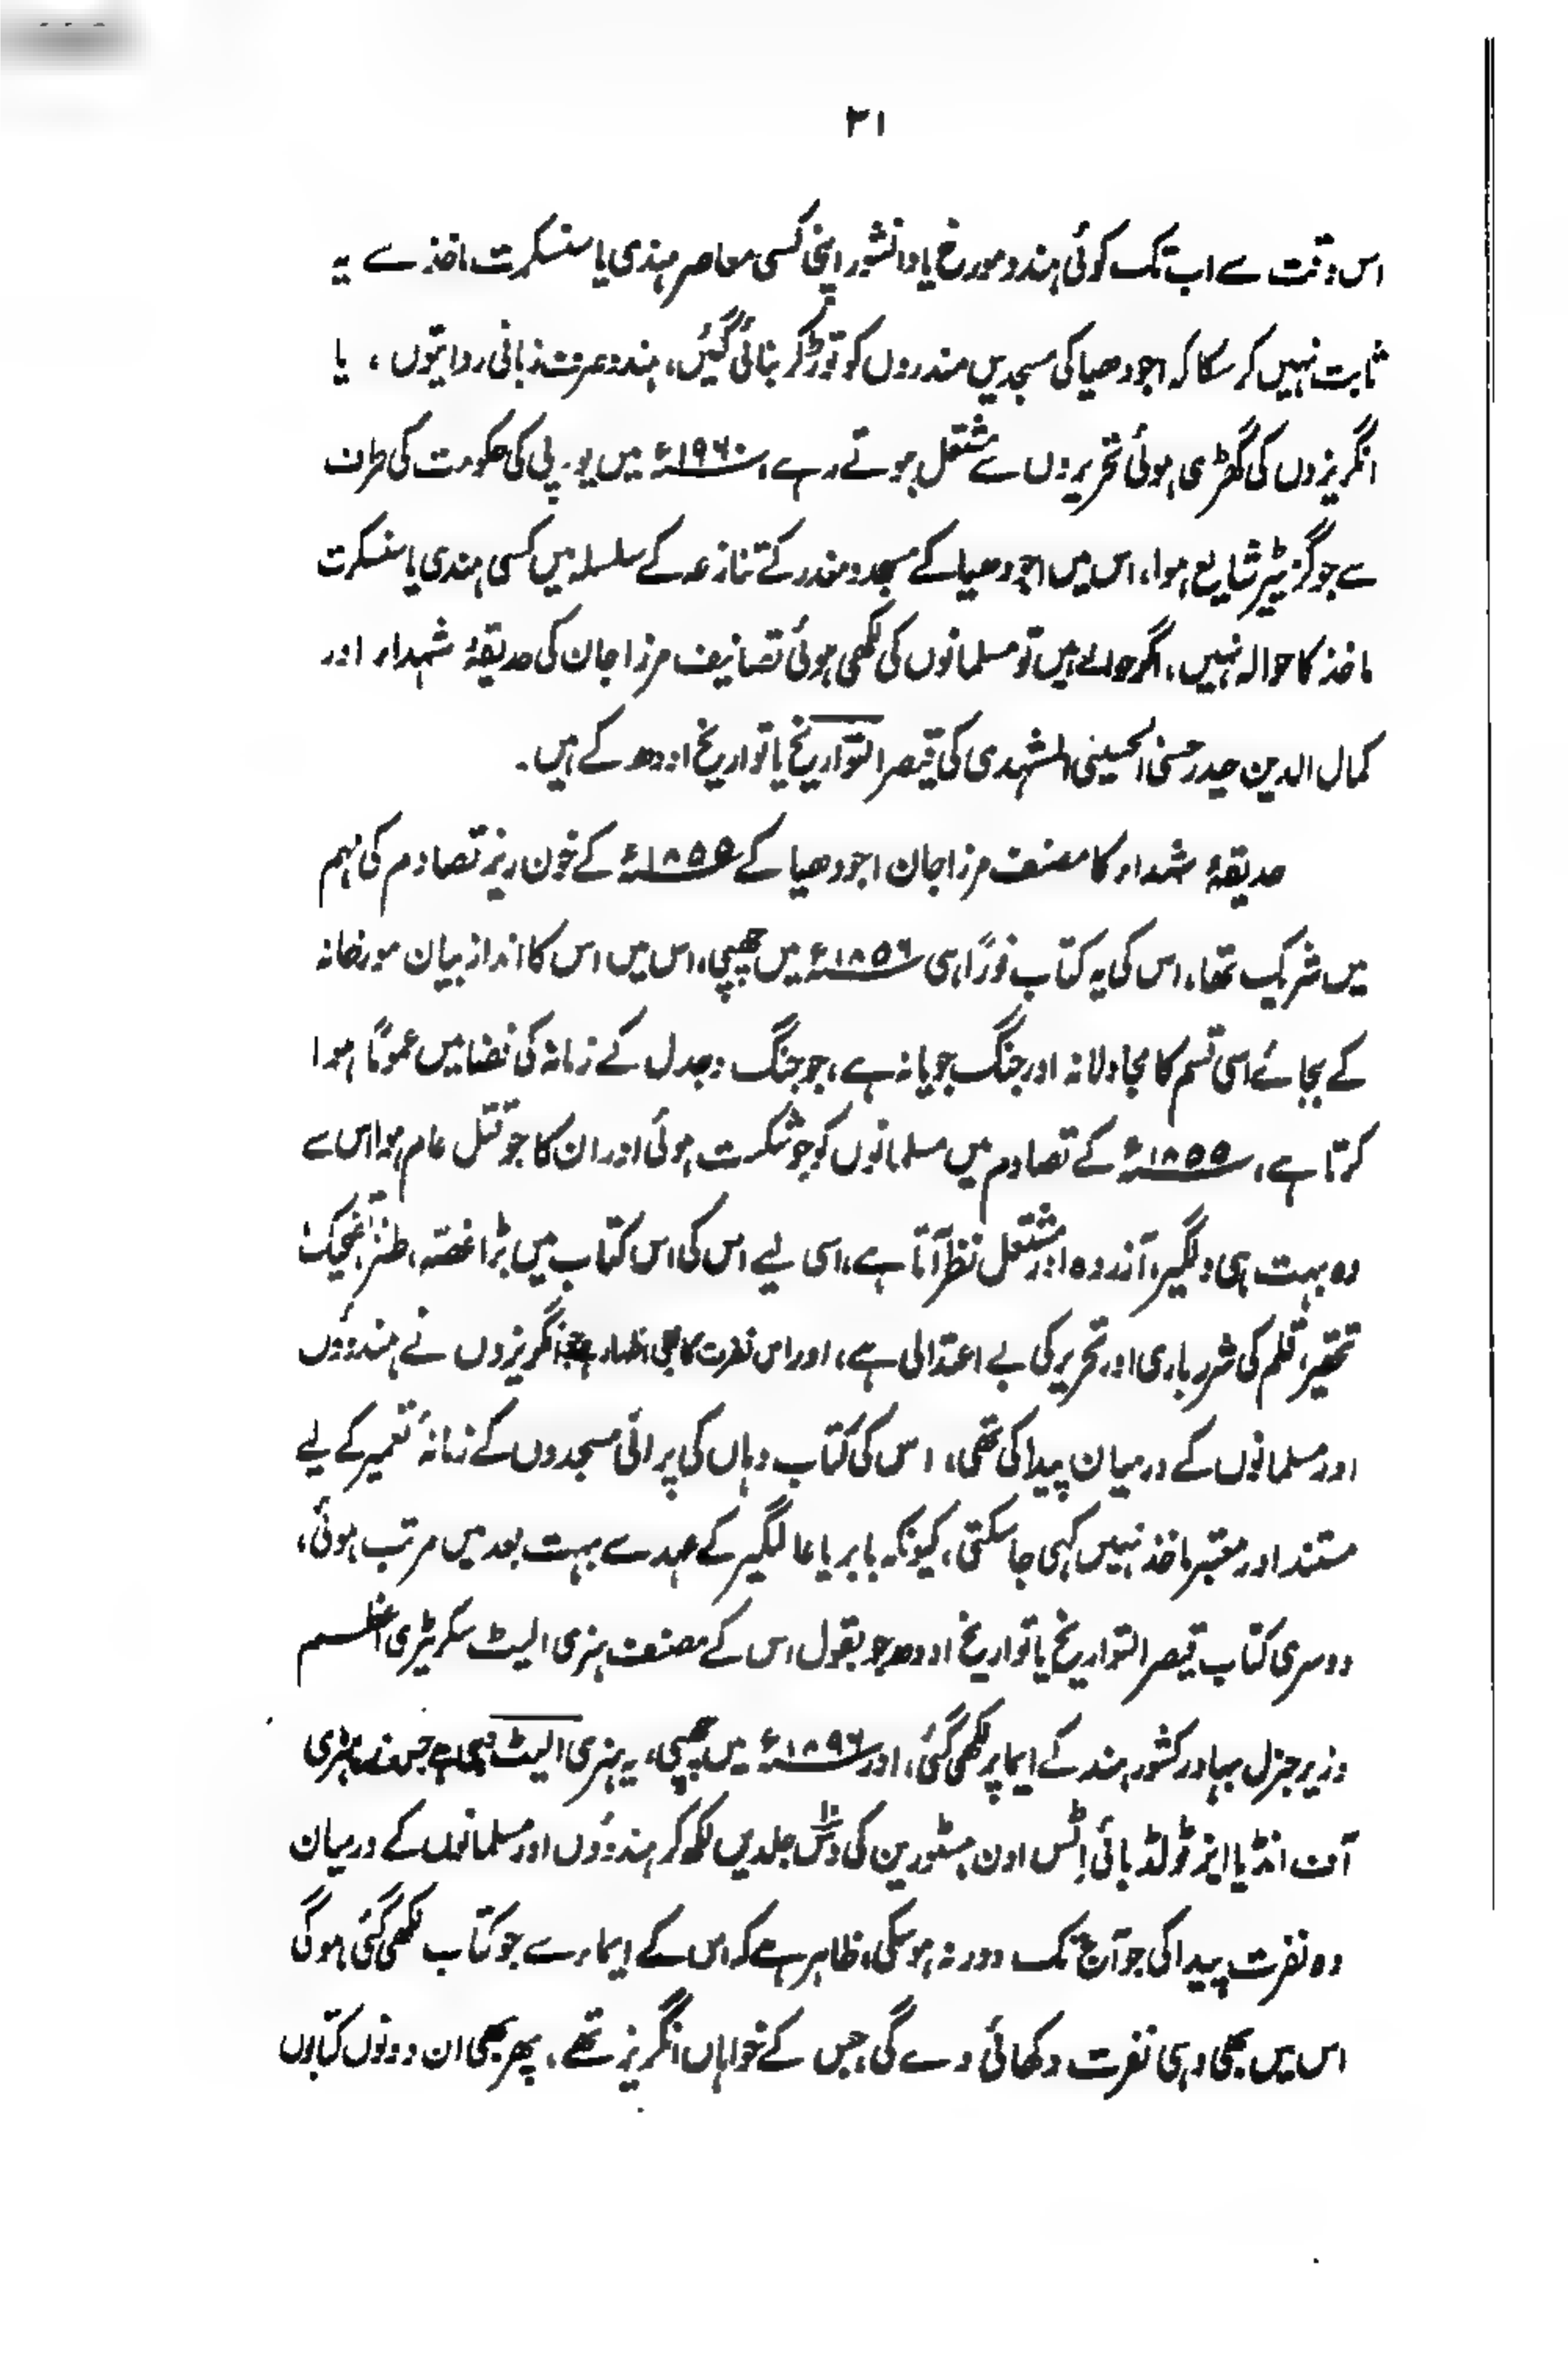 ۳۱
اس وقت سے اب تک کوئی ہندو مورخ یا دانشور اپنی کسی معاصر ہندی یا سنسکرت ماخذ سے یہ
ثابت نہیں کر سکا کہ اجودھیا کی مسجدیں مندروں کو توڑ کر بنائی گئیں، ہندو صرف زبانی روایتوں، یا
انگریزوں کی گھڑی ہوئی تحریروں سے مشتعل ہوتے رہے، ۱۹۶۰ء میں یو۔ پی کی حکومت کی طرف
سے جو گزیٹیر شایع ہوا، اس میں اجودھیا کے مسجد و مندر کے تنازعہ کے سلسلہ میں کسی ہندی یا سنسکرت
ماخذ کا حوالہ نہیں، اگر حوالے ہیں تو مسلمانوں کی لکھی ہوئی تصانیف مرزا جان کی حدیقۂ شہداء اور
کمال الدین حیدر حسنی الحسینی المشہدی کی قیصر التواریخ یا تواریخ اودھ کے ہیں۔
حدیقۂ شہداء کا مصنف مرزا جان اجودھیا کے ۱۸۵۵ء کے خون ریز تصادم کی مہم
میں شریک تھا، اس کی یہ کتاب فوراً ہی ۱۸۵۶ء میں چھپی، اس میں اس کا انداز بیان مورخانہ
کے بجائے اسی قسم کا مجادلانہ اور جنگ جویانہ ہے، جو جنگ و جدل کے زمانہ کی فضا میں عموماً ہوا
کرتا ہے، ۱۸۵۵ء کے تصادم میں مسلمانوں کو جو شکست ہوئی اور ان کا جو قتل عام ہوا اس سے
وہ بہت ہی دلگیر، آزردہ اور مشتعل نظر آتا ہے، اسی لیے اس کی اس کتاب میں بڑا غصہ، طنز، تضحیک،
تحقیر، قلم کی شرر باری اور تحریر کی بے اعتدالی ہے، اور اس نفرت کا بھی اظہار ہے جو انگریزوں نے ہندوؤں
اور مسلمانوں کے درمیان پیدا کی تھی، اس کی کتاب وہاں کی پرانی مسجدوں کے زمانۂ تعمیر کے لیے
مستند اور معتبر ماخذ نہیں کہی جا سکتی، کیونکہ بابر یا عالمگیر کے عہد سے بہت بعد میں مرتب ہوئی،
دوسری کتاب قیصر التواریخ یا تواریخ اودھ جو بقول اس کے مصنف ہنری الیٹ سکریٹری اعظم
وزیر جنرل بہادر کشور ہند کے ایما پر لکھی گئی، اور ۱۸۹۶ء میں چھپی، یہ ہنری الیٹ وہی ہے جس نے ہسٹری
آف انڈیا ایز ٹولڈ بائی اِٹس اون ہسٹورین کی دس جلدیں لکھ کر ہندوؤں اور مسلمانوں کے درمیان
وہ نفرت پیدا کی جو آج تک دور نہ ہو سکی، ظاہر ہے کہ اس کے ایماء سے جو کتاب لکھی گئی ہوگی
اس میں بھی وہی نفرت دکھائی دے گی، جس کے خواہاں انگریز تھے، پھر بھی ان دونوں کتابوں